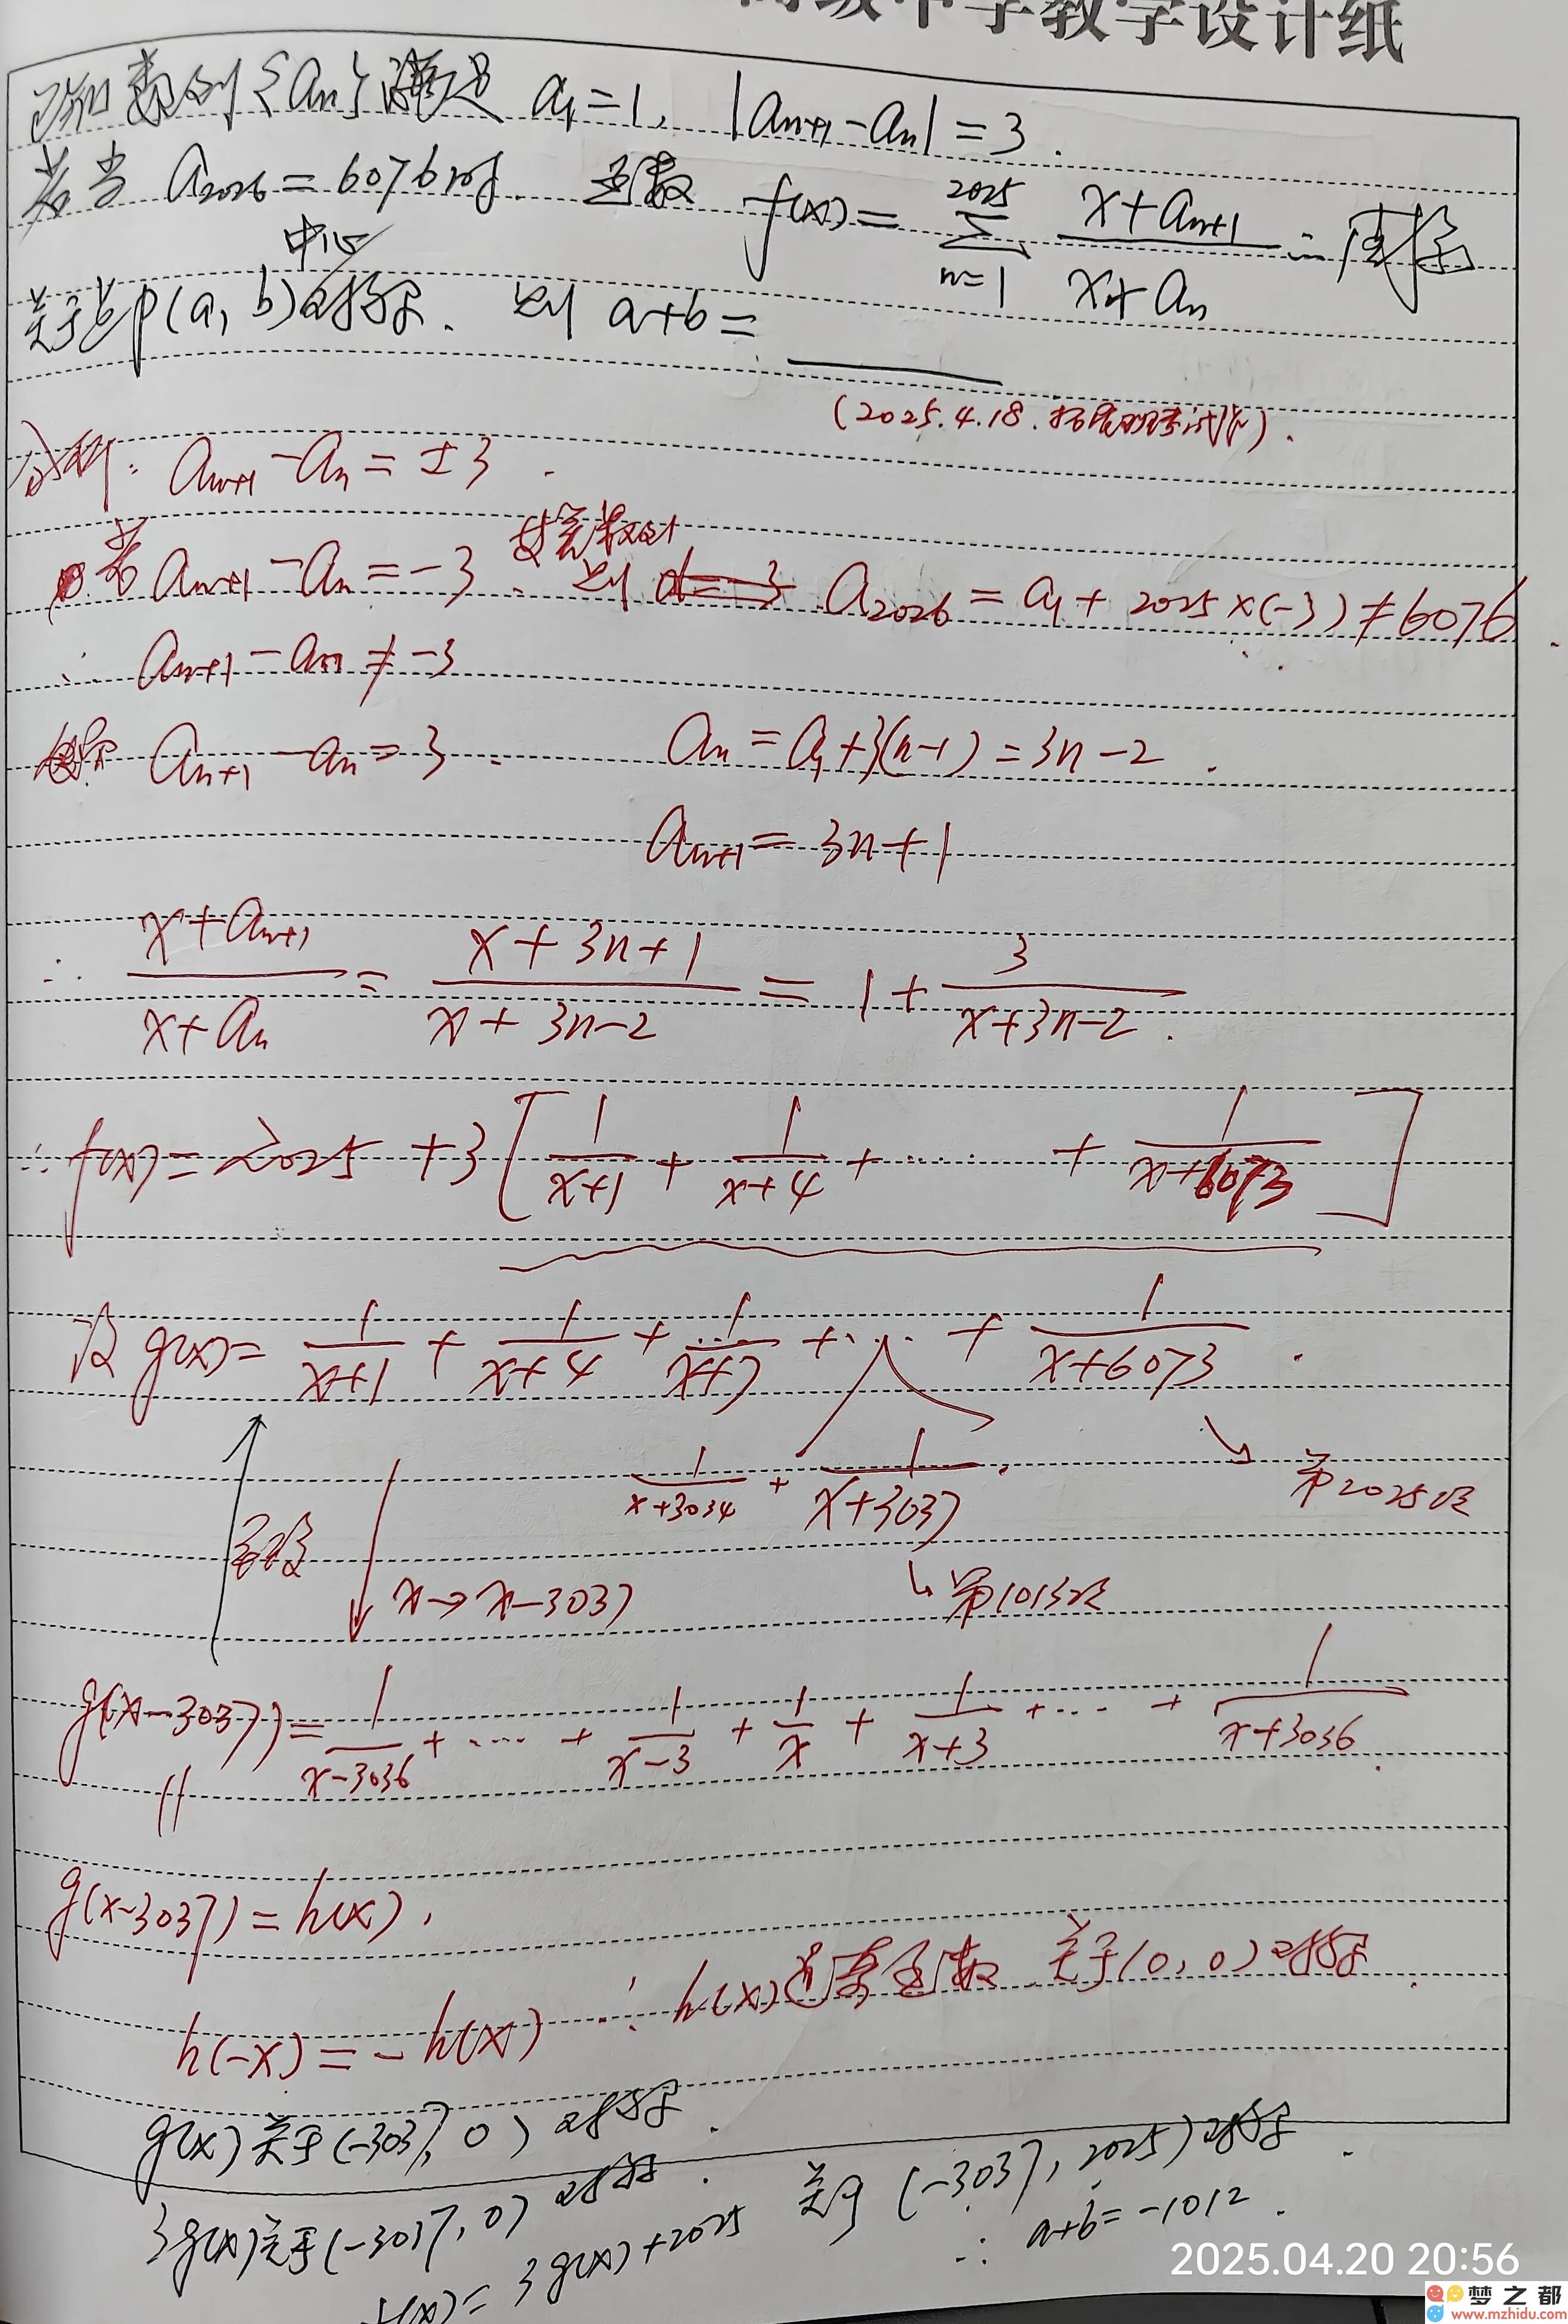 高级中学教学设计纸
已知数列{an}满足 a1=1, |an+1-an|=3.
若当 a2026=6076时. 函数 f(x)=∑(n=1→2025) (x+an+1)/(x+an) 图像
中心
关于点p(a,b)对称. 则 a+b=____
(2025.4.18.拓展班考试卷).
分析: an+1-an=±3.
若 an+1-an=-3. 则 d=-3 a2026=a1+2025×(-3)≠6076.
∴ an+1-an≠-3
an+1-an=3. an=a1+3(n-1)=3n-2.
an+1=3n+1
∴ (x+an+1)/(x+an)=(x+3n+1)/(x+3n-2)=1+3/(x+3n-2).
∴ f(x)=2025+3[1/(x+1)+1/(x+4)+……+1/(x+6073)]
设 g(x)=1/(x+1)+1/(x+4)+1/(x+7)+……+1/(x+6073).
1/(x+3034)+1/(x+3037).
第2025项
x→x-3037 第1013项
g(x-3037)=1/(x-3036)+……+1/(x-3)+1/x+1/(x+3)+……+1/(x+3036).
||
g(x-3037)=h(x),
h(-x)=-h(x) ∴ h(x)是奇函数 关于(0,0)对称.
g(x)关于(-3037,0)对称.
3g(x)关于(-3037,0)对称.
f(x)=3g(x)+2025 关于(-3037,2025)对称.
∴ a+b=-1012.
2025.04.20 20:56
梦之都
www.mzhidu.com